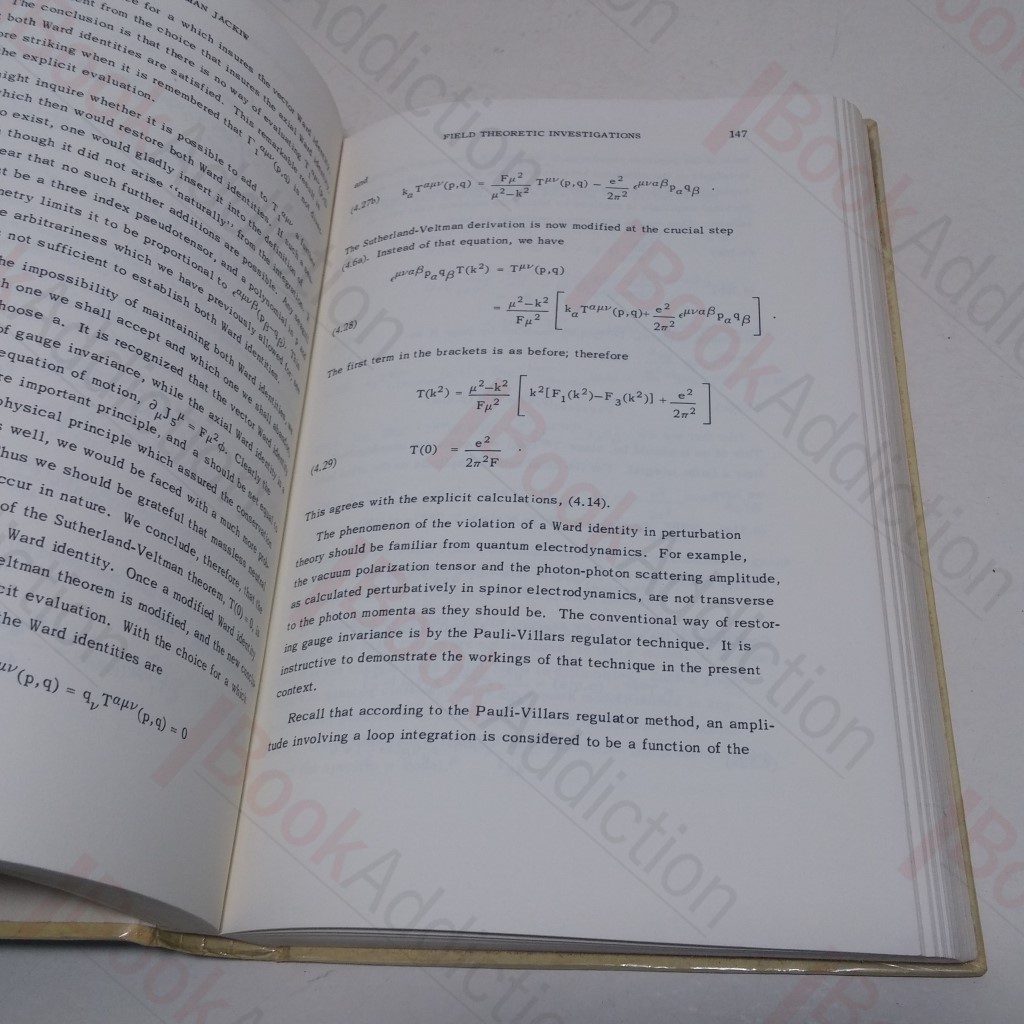 MAN JACKIW
for a which insures the vector Ward identity
from the choice that insures the axial Ward identity.
The conclusion is that there is no way of evaluating
both Ward identities are satisfied. This remarkable
ore striking when it is remembered that Γ
he explicit evaluation.
ight inquire whether it is possible to add to T
which then would restore both Ward identities. If such a
o exist, one would gladly insert it into the definition of
though it did not arise "naturally" from the integration
ear that no such further additions are possible. Any
t be a three index pseudotensor, and a polynomial in p
metry limits it to be proportional to
e arbitrariness which we have previously allowed for,
not sufficient to establish both Ward identities.
he impossibility of maintaining both Ward identities, we
h one we shall accept and which one we shall abandon
hoose a. It is recognized that the vector Ward identity
of gauge invariance, while the axial Ward identity is a
equation of motion, ∂μJ5^μ = Fμ²ϕ. Clearly the
re important principle, and a should be set equal to
physical principle which assured the conservation
s well, we would be faced with a much more
hus we should be grateful that massless neutral
ccur in nature. We conclude, therefore, that the
of the Sutherland-Veltman theorem, T(0) = 0, is
Ward identity. Once a modified Ward identity
eltman theorem is modified, and the new
cit evaluation. With the choice for a which
he Ward identities are
μν(p,q) = q_ν T^αμν(p,q) = 0
FIELD THEORETIC INVESTIGATIONS 147
and
(4.27b) k_α T^αμν(p,q) = Fμ²/(μ²−k²) T^μν(p,q) − e²/2π² ϵ^μναβ p_α q_β .
The Sutherland-Veltman derivation is now modified at the crucial step
(4.6a). Instead of that equation, we have
ϵ^μναβ p_α q_β T(k²) = T^μν(p,q)
(4.28) = (μ²−k²)/Fμ² [ k_α T^αμν(p,q) + e²/2π² ϵ^μναβ p_α q_β ] .
The first term in the brackets is as before; therefore
T(k²) = (μ²−k²)/Fμ² [ k²[F₁(k²)−F₃(k²)] + e²/2π² ]
(4.29) T(0) = e²/2π²F .
This agrees with the explicit calculations, (4.14).
The phenomenon of the violation of a Ward identity in perturbation
theory should be familiar from quantum electrodynamics. For example,
the vacuum polarization tensor and the photon-photon scattering amplitude,
as calculated perturbatively in spinor electrodynamics, are not transverse
to the photon momenta as they should be. The conventional way of restor-
ing gauge invariance is by the Pauli-Villars regulator technique. It is
instructive to demonstrate the workings of that technique in the present
context.
Recall that according to the Pauli-Villars regulator method, an ampli-
tude involving a loop integration is considered to be a function of the
BookAddiction